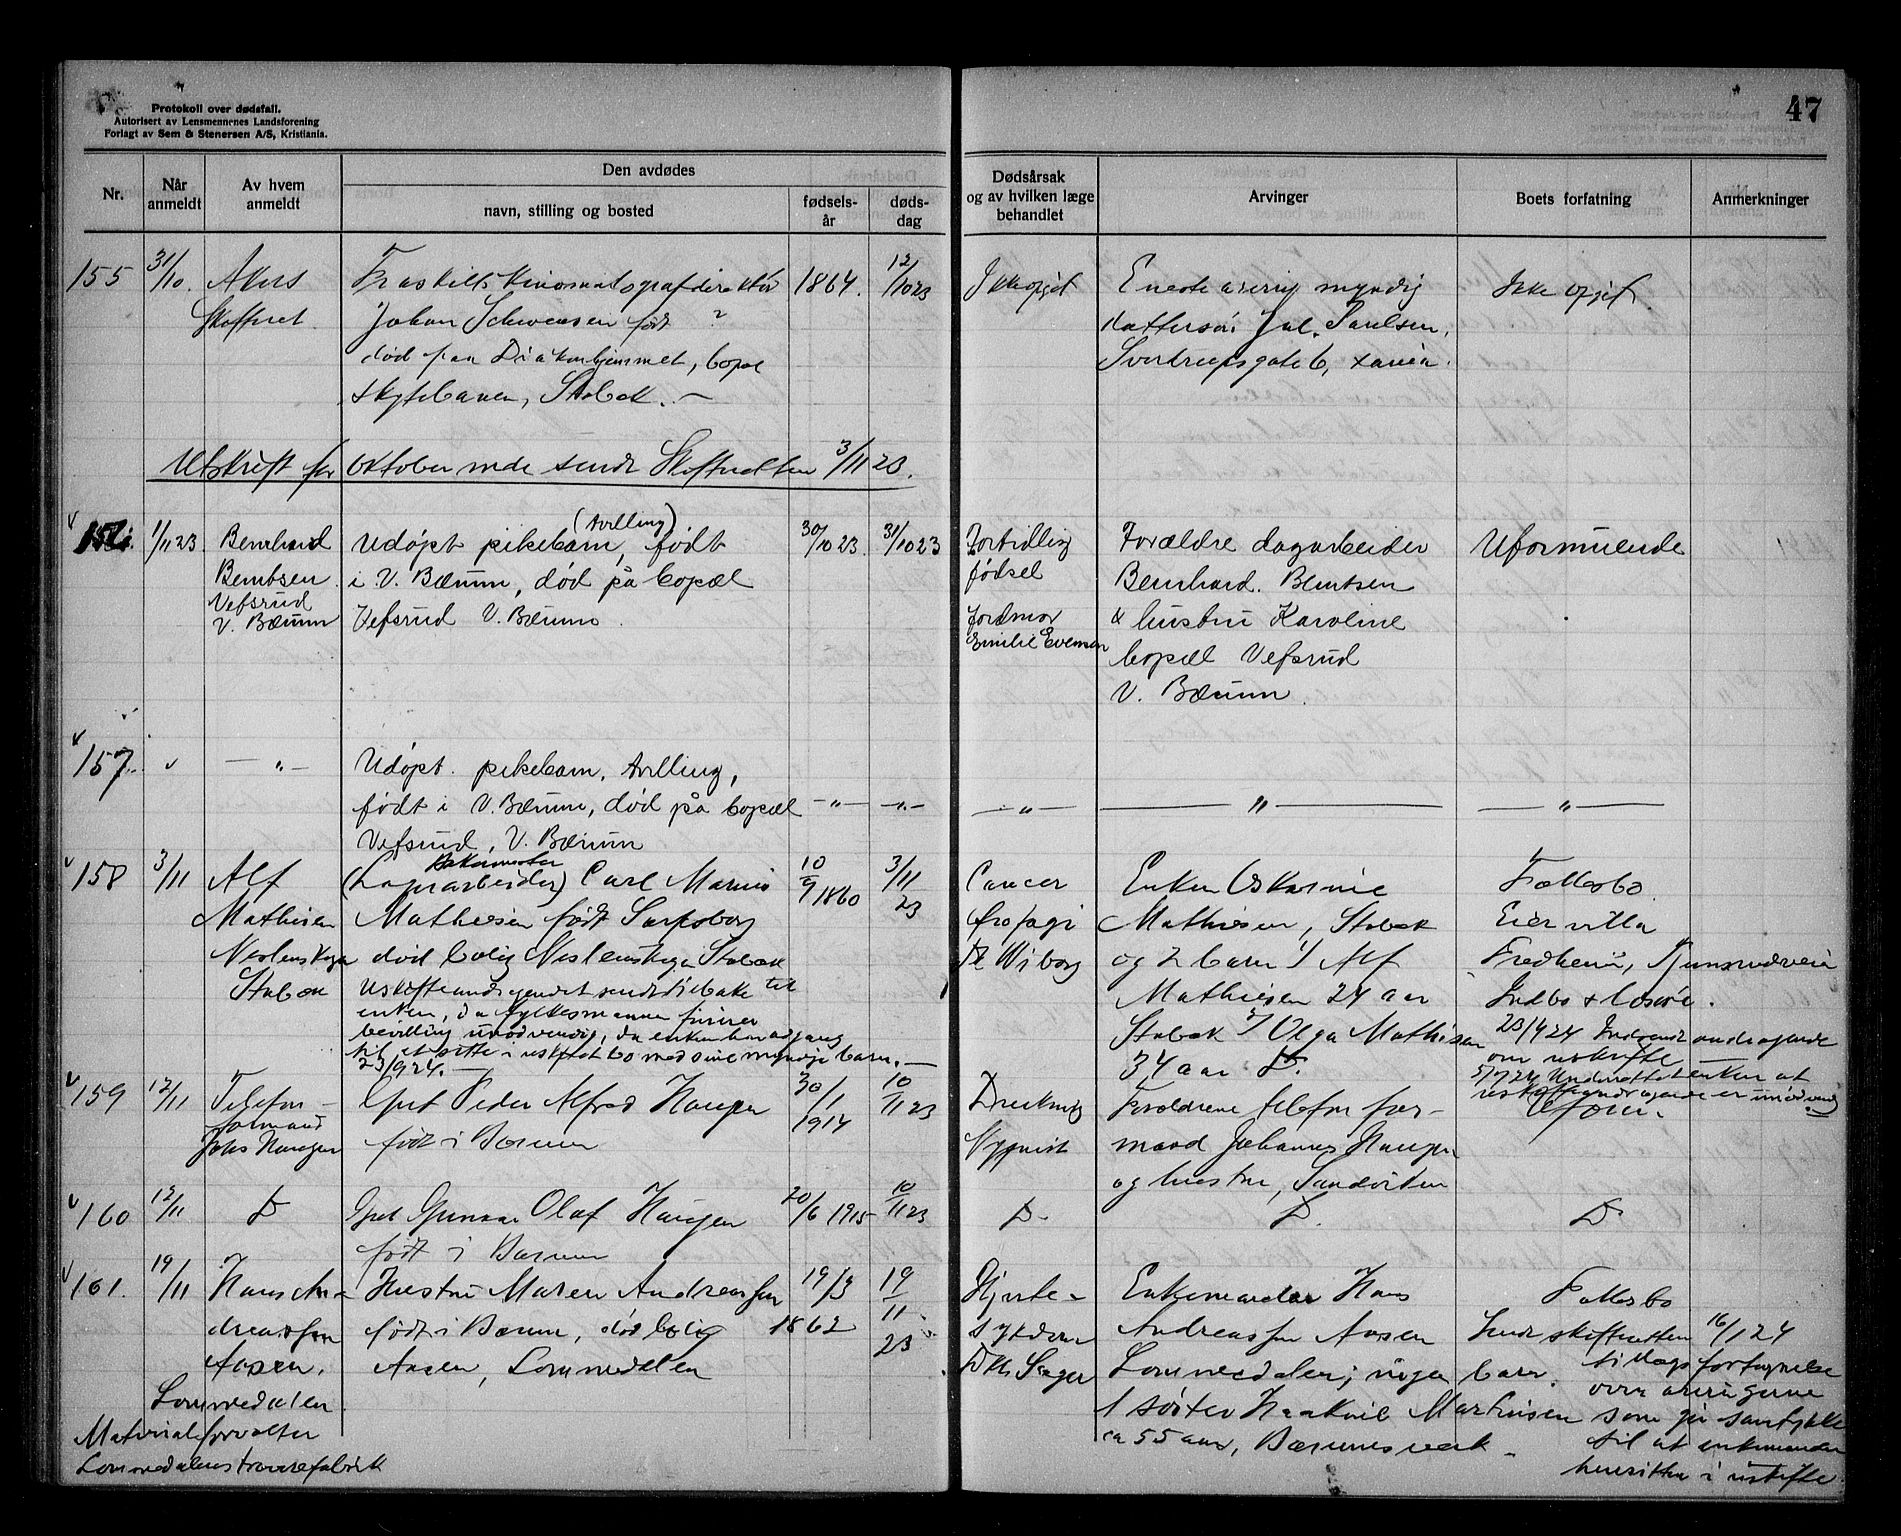 Protokoll over dødsfall.
Autorisert av Lensmennenes Landsforening
Forlagt av Sem & Stenersen A/S, Kristiania.
47
Nr.
Når anmeldt
Av hvem anmeldt
Den avdødes
navn, stilling og bosted
fødsels-år
døds-dag
Dødsårsak og av hvilken læge behandlet
Arvinger
Boets forfatning
Anmerkninger
155 31/10. Akers Fraskilt Kinomatografdirektør 1864. 12/10 23 Ikke opgit Eneste arving myndig Ikke opgit
Skifteret Johan født ? dattersøn Paulsen,
død paa Diakonhjemmet, bopæl Sverdrupsgate 6,
Skytebanen, Stabæk. —
Utskrift for oktober mde sendt Skifteretten 3/11 23.
156. 1/11 23 Bernhard Udøpt pikebarn, (tvilling) født 30/10 23. 31/10 23 Fortidlig Forældre dagarbeider Uformuende
Berntsen i V. Bærum, død på bopæl fødsel Bernhard Berntsen
Vefsrud Vefsrud V. Bærum. Jordmor & hustru Karoline
V. Bærum Emilie Evensen bopæl Vefsrud
V. Bærum.
157. " — " — Udøpt pikebarn, tvilling,
født i V. Bærum, død på bopæl — " — — " — — " — — " — — " —
Vefsrud, V. Bærum
158 3/11 Alf (Lagerarbeider) Bakermester Carl Marius 10/9 1860 3/11 23 Cancer Enken Oskarine Fællesbo.
Mathisen Mathiesen født Sarpsborg Mathiesen, Stabæk Eier villa
død bolig Stabæk Dr Wiborg og 2 barn 1/ Alf Fredheim,
Stabæk Mathiesen 24 aar Indbo & løsøre.
Uskifteandragendet sendt tilbake til Stabæk 2/ Olga Mathisen 23/9 24 Indsendt andragende
enken, da fylkesmannen finner 34 aar D. om uskifte
bevilling unødvendig, da enken har adgang
til at sitte i uskiftet bo med sine myndige barn. —
23/9 24. —
5/7 24 Underrettet enken at
uskifteandragende er unødvendig
159 12/11 Telefon- Gut Peder Alfred Haugen 30/1 1914 10/11 23 Drukning Forældrene telefonfor-
formand født i Bærum Nyquist mand Johannes Haugen
Johs Haugen og hustru, Sandviken
160 12/11 D Gut Gunnar Olaf Haugen 20/6 1915 10/11 23 D- D. D
født i Bærum
161. 19/11 Hans An- Hustru Maren Andreassen 19/3 1862 19/11 23 Hjerte- Enkemanden Hans Fællesbo
dreassen født i Bærum, død bolig sykdom Andreassen Aasen Sendt skifteretten 16/1 24
Aasen, Aasen, Lommedalen Lommedalen; ingen barn. tillægsfortegnelse
Lommedalen 1 søster Martinsen over arvingerne
Materialforvalter ca 55 aar, Bærumsverk — som gir samtykke
Lommedalens træværefabrik til at enkemanden
hensitter i uskifte.